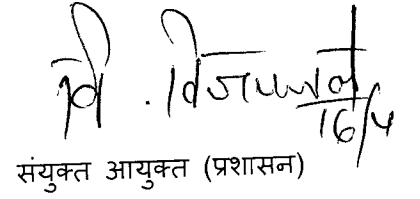 वि. विजयपाल
16/4
संयुक्त आयुक्त (प्रशासन)